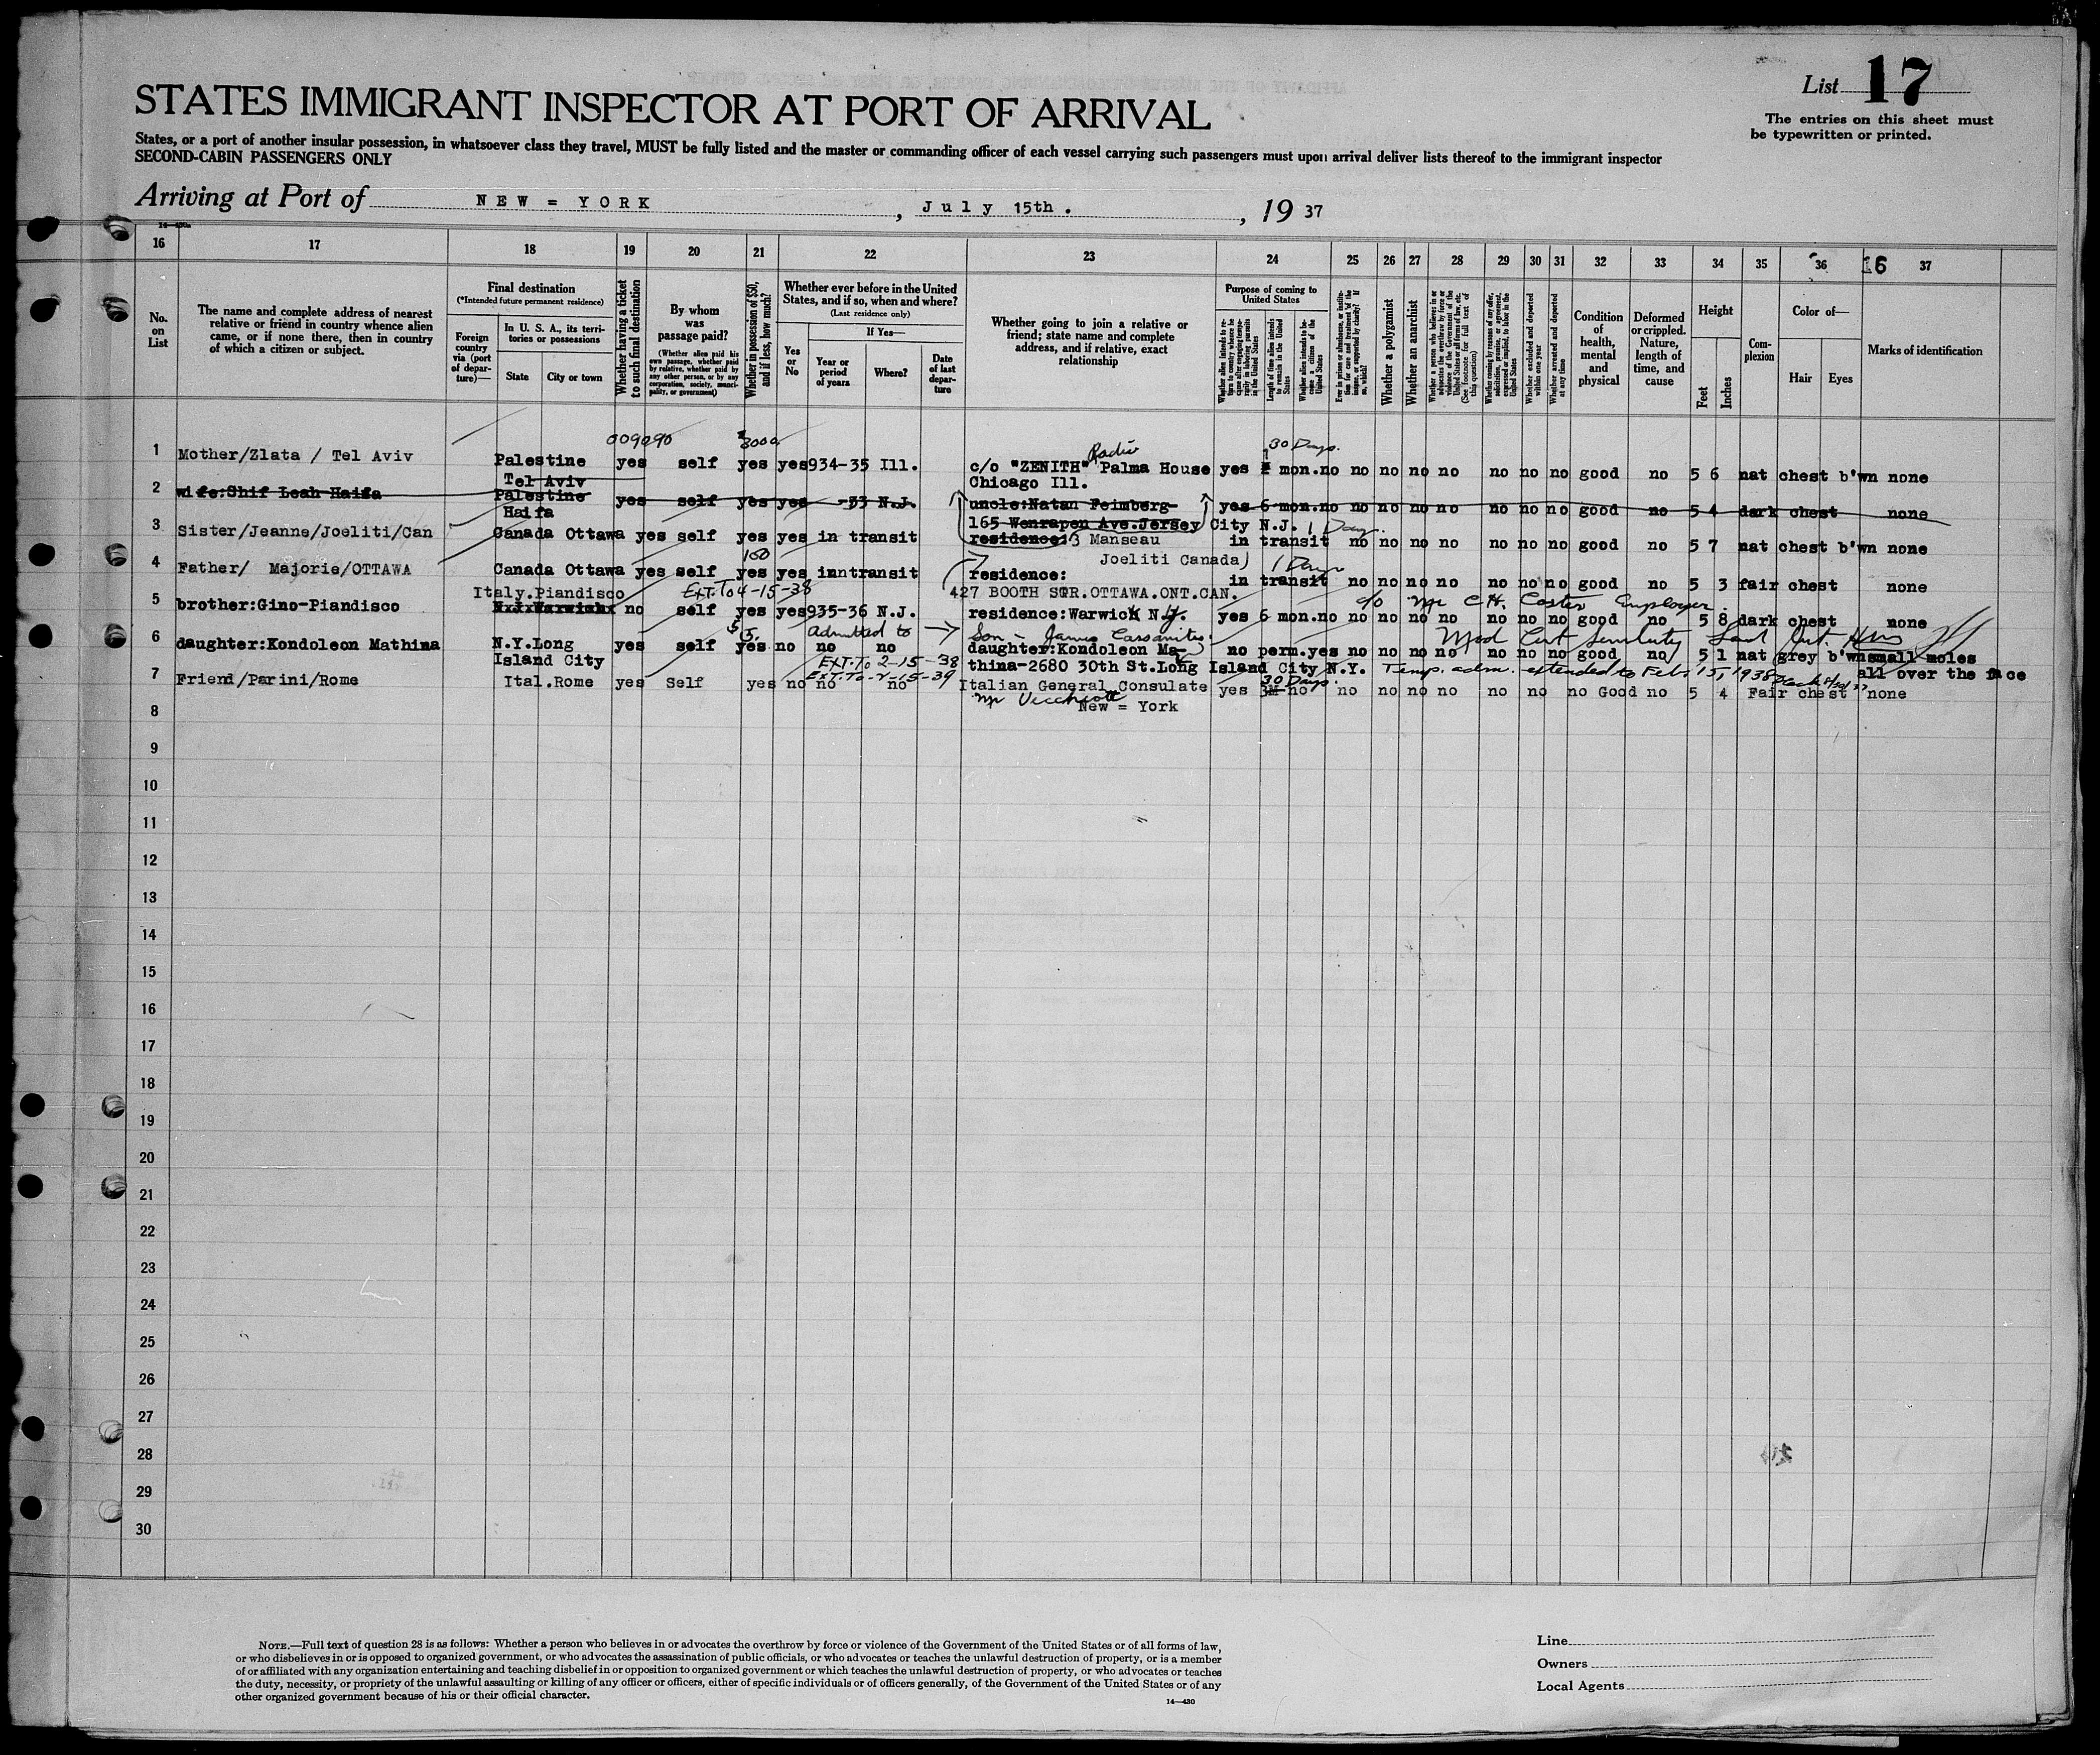 List 17
The entries on this sheet must
be typewritten or printed.
STATES IMMIGRANT INSPECTOR AT PORT OF ARRIVAL
States, or a port of another insular possession, in whatsoever class they travel, MUST be fully listed and the master or commanding officer of each vessel carrying such passengers must upon arrival deliver lists thereof to the immigrant inspector
SECOND-CABIN PASSENGERS ONLY
Arriving at Port of NEW = YORK, July 15th., 19 37
16 17 18 19 20 21 22 23 24 25 26 27 28 29 30 31 32 33 34 35 36 16 37
No. on List
The name and complete address of nearest
relative or friend in country whence alien
came, or if none there, then in country
of which a citizen or subject.
Final destination
(*Intended future permanent residence)
Foreign country via (port of departure)—
In U. S. A., its territories or possessions
State
City or town
Whether having a ticket to such final destination
By whom was passage paid?
(Whether alien paid his own passage, whether paid by relative, whether paid by any other person, or by any corporation, society, municipality, or government)
Whether in possession of $50, and if less, how much?
Whether ever before in the United States, and if so, when and where?
(Last residence only)
Yes or No
If Yes—
Year or period of years
Where?
Date of last departure
Whether going to join a relative or
friend; state name and complete
address, and if relative, exact
relationship
Purpose of coming to United States
Length of time alien intends to remain in the United States
Whether alien intends to become a citizen of the United States
Whether a polygamist
Whether an anarchist
Whether excluded and deported within one year
Whether arrested and deported at any time
Condition of health, mental and physical
Deformed or crippled. Nature, length of time, and cause
Height
Feet
Inches
Complexion
Color of—
Hair
Eyes
Marks of identification
009090 3000 Radio 30 Days.
1 Mother/Zlata / Tel Aviv Palestine yes self yes yes 934-35 Ill. c/o "ZENITH" Palma House yes mon. no no no no no no no no good no 5 6 nat chest b'wn none
Tel Aviv Chicago Ill.
2 wife:Shif Leah Haifa Palestine yes self yes yes -33 N.J. uncle:Natan Feimberg- yes 6 mon. no no no no no no no no good no 5 4 dark chest none
Haifa 165 Wenrapen Ave.Jersey City N.J. 1 Day.
3 Sister/Jeanne/Joeliti/Can Canada Ottawa yes self yes yes in transit residence:13 Manseau in transit no no no no no no no good no 5 7 nat chest b'wn none
100 Joeliti Canada) 1 Day
4 Father/ Majorie/OTTAWA Canada Ottawa yes self yes yes inntransit residence: in transit no no no no no no no good no 5 3 fair chest none
Italy.Piandisco EXT. To 4-15-38 427 BOOTH STR.OTTAWA.ONT.CAN. c/o Mr C.H. Coster Employer.
5 brother:Gino-Piandisco N.J.Warwick no self yes yes 935-36 N.J. residence:Warwick N.Y. yes 6 mon. no no no no no no no no good no 5 8 dark chest none
5. admitted to Son - James Cassanites. Med Cert Senility
6 daughter:Kondoleon Mathina N.Y.Long yes self yes no no no daughter:Kondoleon Ma- no perm. yes no no no no no no no good no 5 1 nat grey b'wn small moles
Island City EXT. To 2-15-38 thina-2680 30th St.Long Island City N.Y. Temp. adm. extended to Feb. 15, 1938 all over the face
EXT. To 2-15-39 30 Days.
7 Friend/Parini/Rome Ital.Rome yes Self yes no no no Italian General Consulate yes 3M no no no no no no no no Good no 5 4 Fair chest none
8 New = York
9
10
11
12
13
14
15
16
17
18
19
20
21
22
23
24
25
26
27
28
29
30
NOTE.—Full text of question 28 is as follows: Whether a person who believes in or advocates the overthrow by force or violence of the Government of the United States or of all forms of law,
or who disbelieves in or is opposed to organized government, or who advocates the assassination of public officials, or who advocates or teaches the unlawful destruction of property, or is a member
of or affiliated with any organization entertaining and teaching disbelief in or opposition to organized government or which teaches the unlawful destruction of property, or who advocates or teaches
the duty, necessity, or propriety of the unlawful assaulting or killing of any officer or officers, either of specific individuals or of officers generally, of the Government of the United States or of any
other organized government because of his or their official character.
14—430
Line
Owners
Local Agents